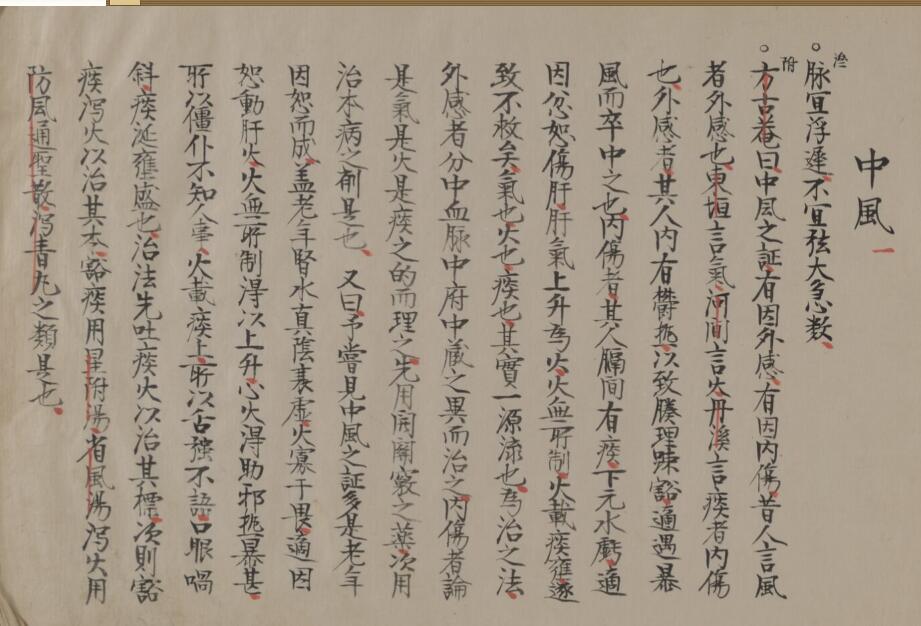 中風 一
脉宜浮遲不宜弦大急數
附方古菴曰中風之証有因外感有因内傷昔人言風
者外感也東垣言氣河間言火丹溪言痰者内傷
也外感者其人内有欝熱以致腠理踈豁適遇暴
風而卒中之也内傷者其人膈間有痰下元水虧適
因忿怒傷肝肝氣上升為火火無所制火載痰 逐
致不救矣氣也火也痰也其實一源流也為治之法
外感者分中血脉中府中蔵之異而治之内傷者論
是氣是火是痰之的而理之先用開關竅之薬次用
治本病之剤是也 又曰予嘗見中風之証多是老年
因怒而成盖老年腎水真陰衰虚火寡于畏適因
怒動肝火火無所制得以上升心火得助邪熱暴甚
所以僵仆不知人事火載痰上所以舌強不語口眼喎
斜痰涎壅盛也治法先吐痰火以治其標次則豁
痰瀉火以治其本豁痰用星附湯省風湯瀉火用
防風通聖散瀉青丸之類是也